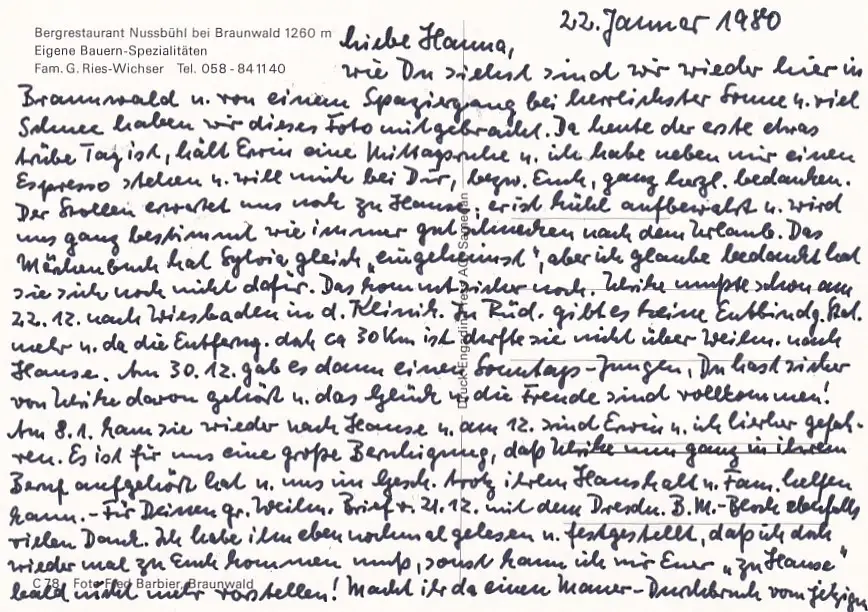 22. Januar 1980
Bergrestaurant Nussbühl bei Braunwald 1260 m
Eigene Bauern-Spezialitäten
Fam. G. Ries-Wichser Tel. 058 - 84 11 40
Liebe Hanna,
wie Du siehst sind wir wieder hier in
Braunwald u. von einem Spaziergang bei herrlichster Sonne u. viel
Schnee haben wir dieses Foto mitgebracht. Da heute der erste etwas
trübe Tag ist, hält Erwin eine Mittagsruhe u. ich habe neben mir einen
Espresso stehen u. will mich bei Dir, bezw. Euch, ganz herzl. bedanken.
Der Stollen erwartet uns noch zu Hause, er ist kühl aufbewahrt u. wird
uns ganz bestimmt wie immer gut schmecken nach dem Urlaub. Das
Märchenbuch hat Sylvia gleich „eingeheimst", aber ich glaube bedankt hat
sie sich noch nicht dafür. Das kommt sicher noch. Ulrike mußte schon am
22.12. nach Wiesbaden in d. Klinik. In Rüd. gibt es keine Entbindg. Stat.
mehr u. da die Entferng. doch ca 30 Km ist durfte sie nicht über Weihn. nach
Hause. Am 30.12. gab es dann einen Sonntags-Jungen, Du hast sicher
von Ulrike davon gehört u. das Glück u. die Freude sind vollkommen!
Am 8.1. kam sie wieder nach Hause u. am 12. sind Erwin u. ich hierher gefah-
ren. Es ist für uns eine große Beruhigung, daß Ulrike nun ganz in ihrem
Beruf aufgehört hat u. uns im Gesch. trotz ihrem Haushalt u. Fam. helfen
kann. - Für Deinen gr. Weihn. Brief v. 21.12. mit dem Dresdn. B.M.-Block ebenfalls
vielen Dank. Ich habe ihn eben nochmal gelesen u. festgestellt, daß ich doch
wieder mal zu Euch kommen muß, sonst kann ich mir Euer „zu Hause"
bald nicht mehr vorstellen! Macht ihr da einen Mauer-Durchbruch vom jetzigen
C 78 Foto Fred Barbier, Braunwald
Druck Engadin Press AG Samedan